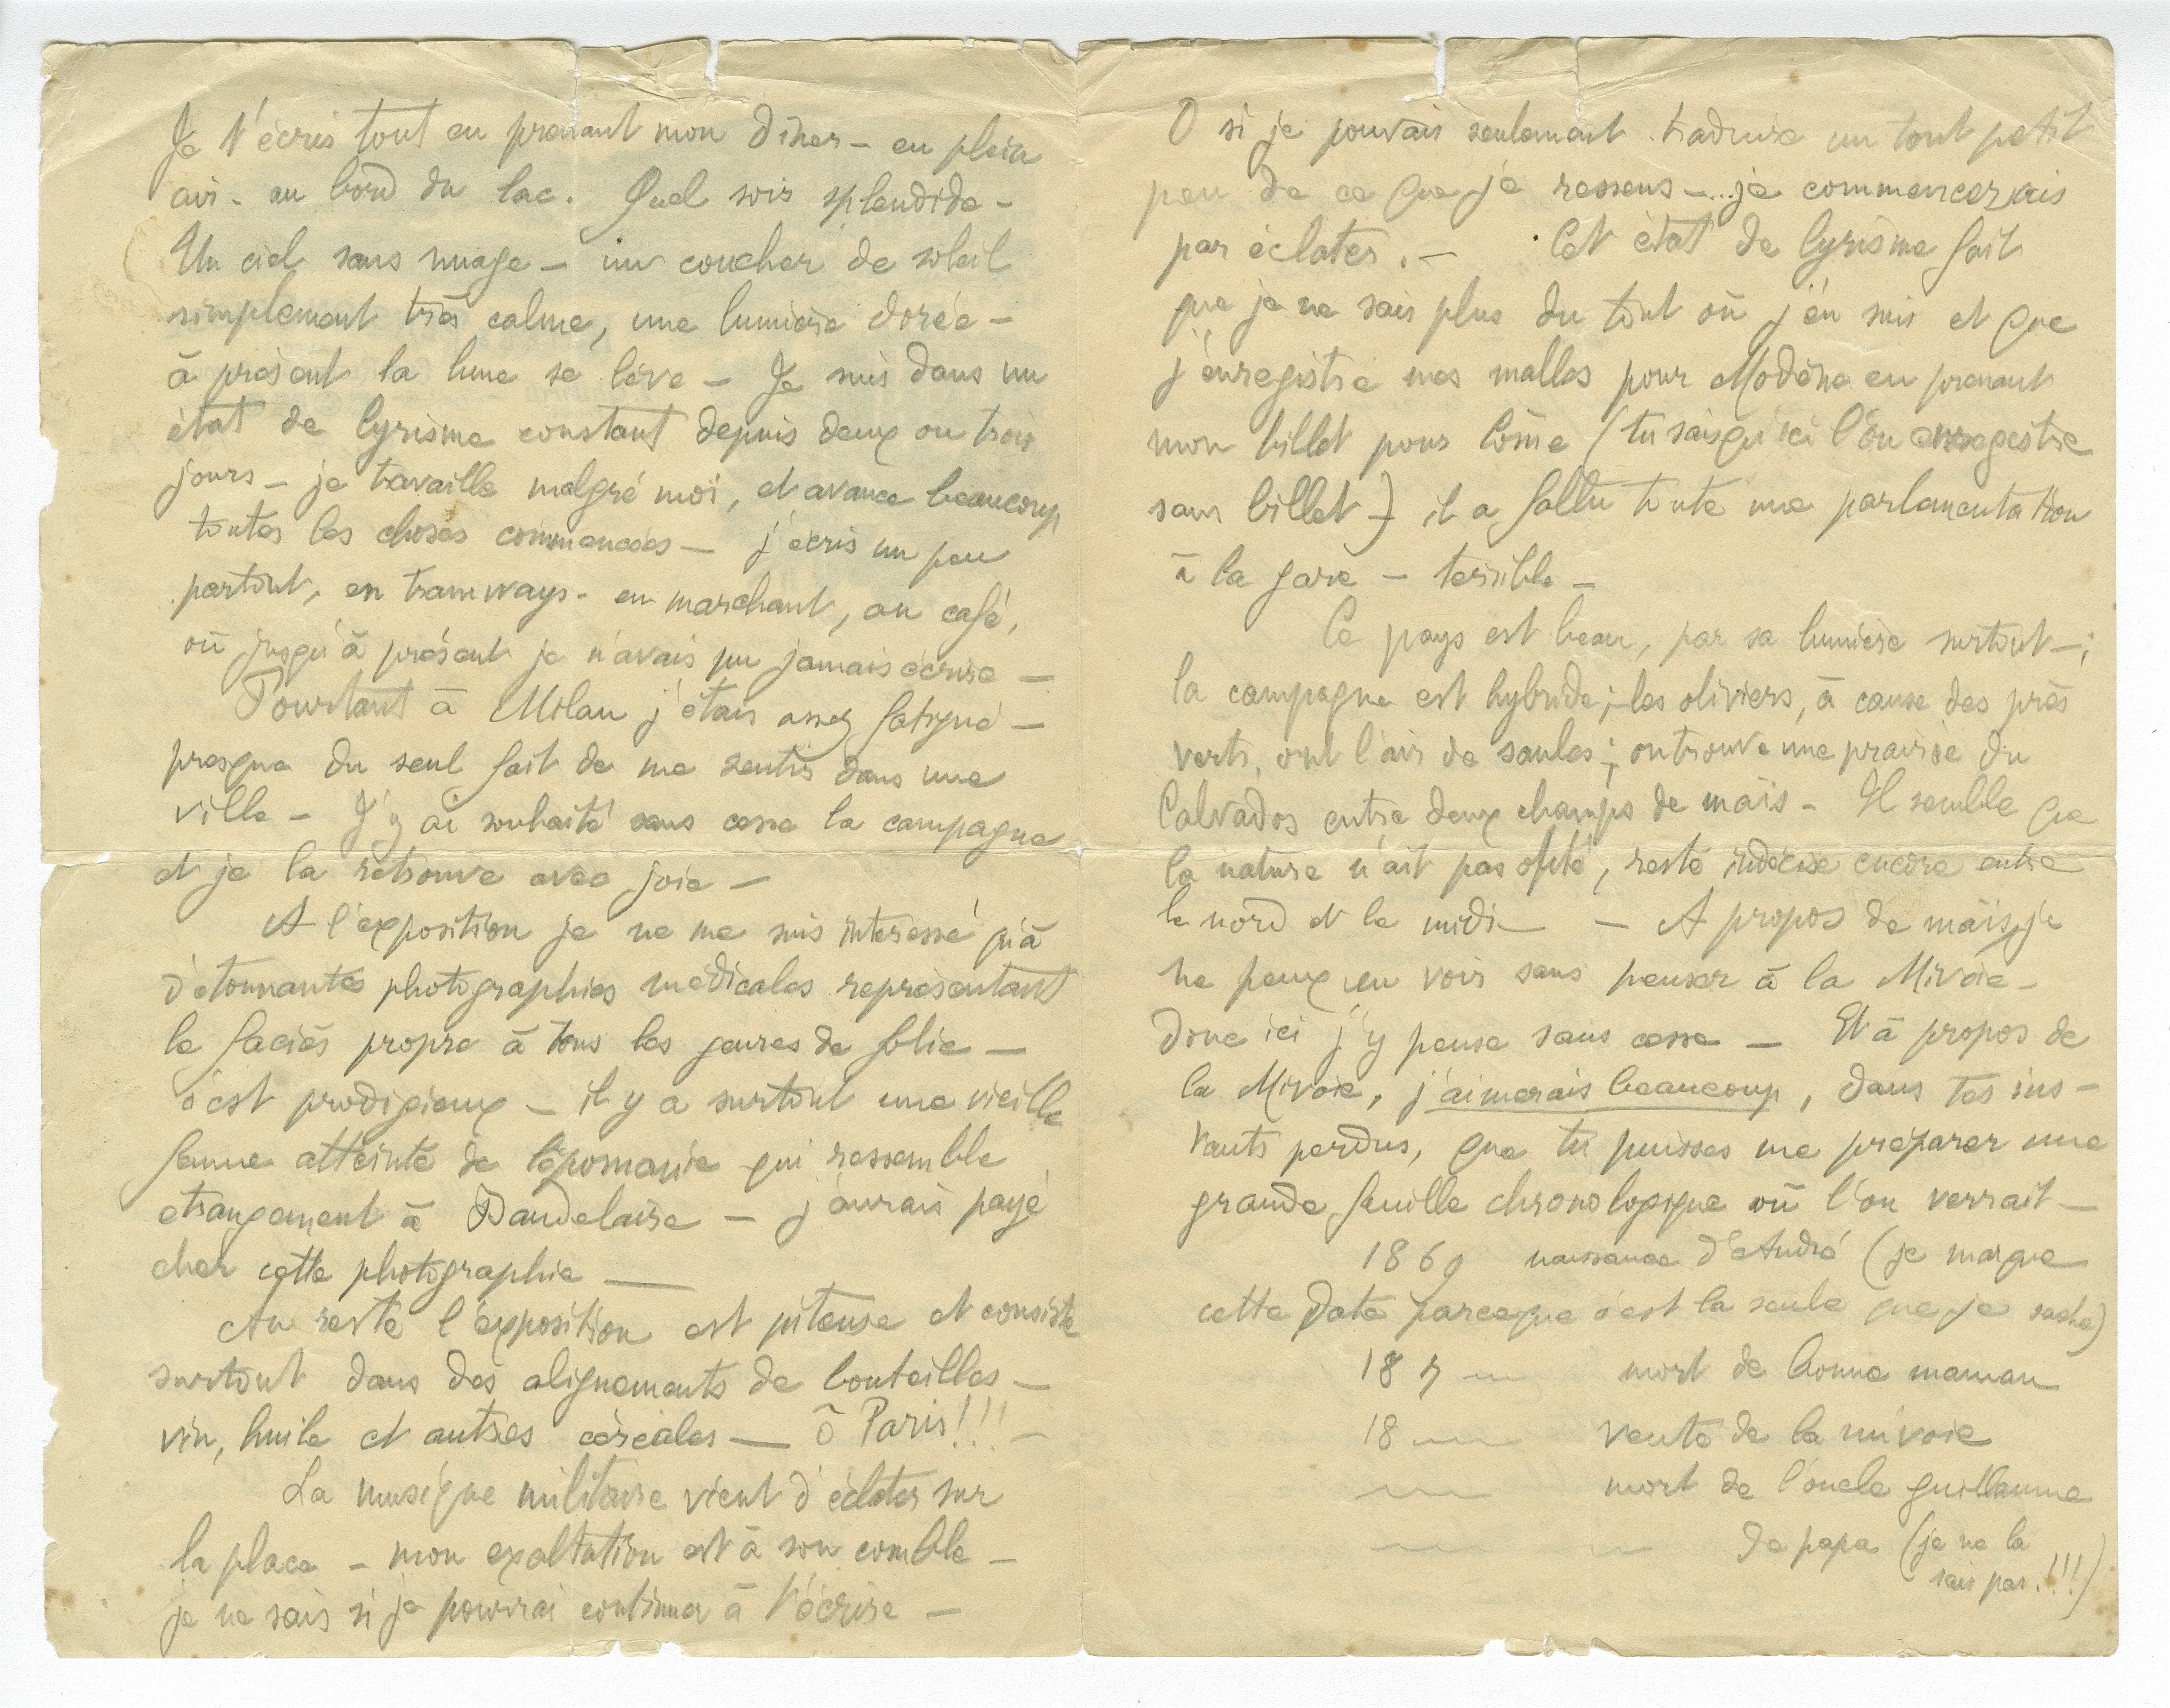 Je t'écris tout en prenant mon dîner – en plein
air – au bord du lac. Quel soir splendide –
Un ciel sans nuage – un coucher de soleil
simplement très calme, une lumière dorée –
à présent la lune se lève – Je suis dans un
état de lyrisme constant depuis deux ou trois
jours – je travaille malgré moi, et avance beaucoup
toutes les choses commencées – j'écris un peu
partout, en tramways – en marchant, au café,
où jusqu'à présent je n'avais pu jamais écrire –
Pourtant à Milan j'étais assez fatigué –
presque du seul fait de me sentir dans une
ville – J'y ai souhaité sans cesse la campagne
et je la retrouve avec joie –
A l'exposition je ne me suis intéressé qu'à
d'étonnantes photographies médicales représentant
le faciès propre à tous les genres de folie –
c'est prodigieux – il y a surtout une vieille
femme atteinte de qui ressemble
étrangement à Baudelaire – j'aurais payé
cher cette photographie —
Au reste l'exposition est piteuse et consiste
surtout dans des alignements de bouteilles –
vin, huile et autres céréales — ô Paris!!! –
La musique militaire vient d'éclater sur
la place – mon exaltation est à son comble –
je ne sais si je pourrai continuer à t'écrire –
O si je pouvais seulement traduire un tout petit
peu de ce que je ressens –... je commencerais
par éclater. – Cet état de lyrisme fait
que je ne sais plus du tout où j'en suis et que
j'enregistre mes malles pour Modène en prenant
mon billet pour Côme (tu sais qu'ici l'on enregistre
sans billet) il a fallu toute une parlementation
à la gare – terrible –
Ce pays est beau, par sa lumière surtout – ;
la campagne est hybride ; les oliviers, à cause des prés
verts, ont l'air de saules ; on trouve une prairie du
Calvados entre deux champs de maïs – Il semble que
la nature n'ait pas opté, reste indécise encore entre
le nord et le midi – – A propos de maïs, je
ne peux en voir sans penser à la Mivoie –
Donc ici j'y pense sans cesse – Et à propos de
la Mivoie, j'aimerais beaucoup, dans tes ins-
tants perdus, que tu puisses me préparer une
grande feuille chronologique où l'on verrait –
1869 naissance d'André (je marque
cette date parceque c'est la seule que je sache)
18 7 — mort de bonne maman
18 — vente de la mivoie
— mort de l'oncle guillaume
— de papa (je ne la
sais pas.!!!)